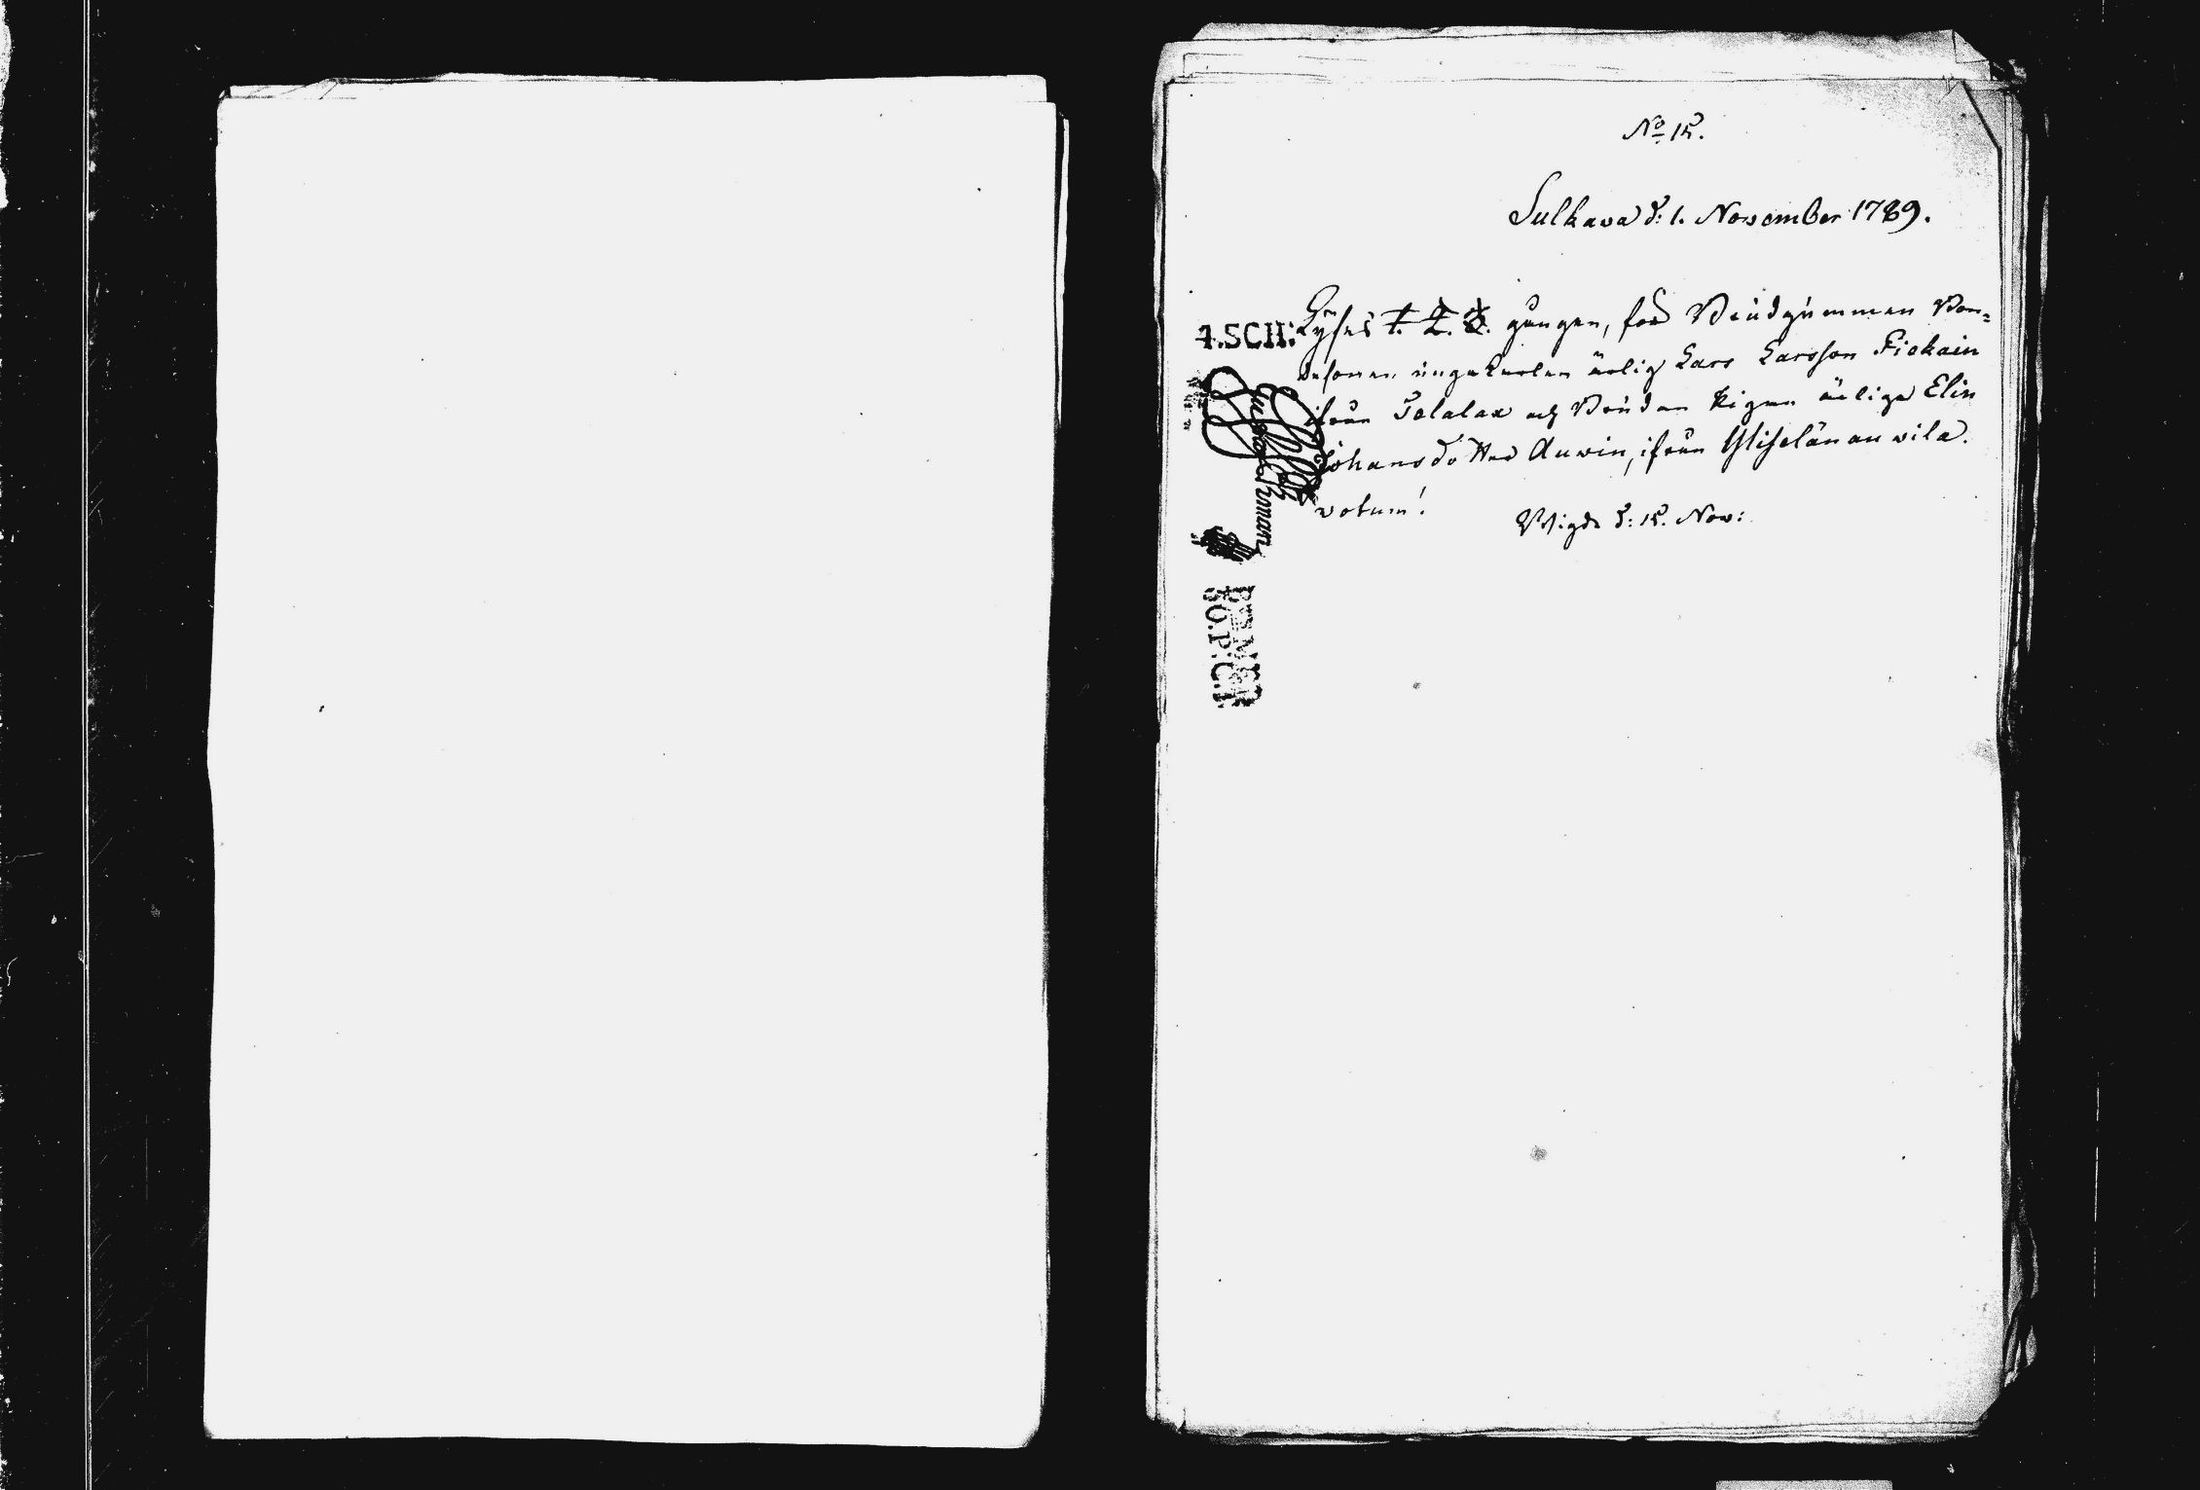 No 15.
Sulkava d: 1. November 1789.
4.SCH:
Lyses 1. 2. 3. gången, för Brudgummen Bon=
desonen ungkarlen ärlig Lars Larsson Fiokain
ifrån Telalax och Brudan Pigan ärliga Elin
Johansdotter Auwin, ifrån
votum!
Wigde d: 15. Nov: